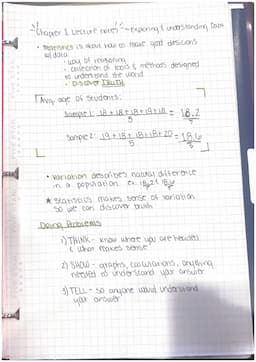 Chapter 1 Lecture notes - Exploring & understanding Data
• Statistics is about how to make good decisions
w/ data
• way of reasoning
• collection of tools & methods designed
to understand the world
• Discover TRUTH
Avg. age of students:
Sample 1: 18 + 18 + 18 + 19 + 18 = 18.2
5
Sample 2: 19 + 18 + 18 + 18 + 20 = 18.6
5
• Variation describes natural difference
in a population. ex. 18.2 & 18.6
★ Statistics makes sense of variation
so we can discover truth
Doing Problems
1) THINK - know where you are headed
& what makes sense
2) SHOW - graphs, calculations, anything
needed to understand your answer
3) TELL - so anyone would understand
your answer